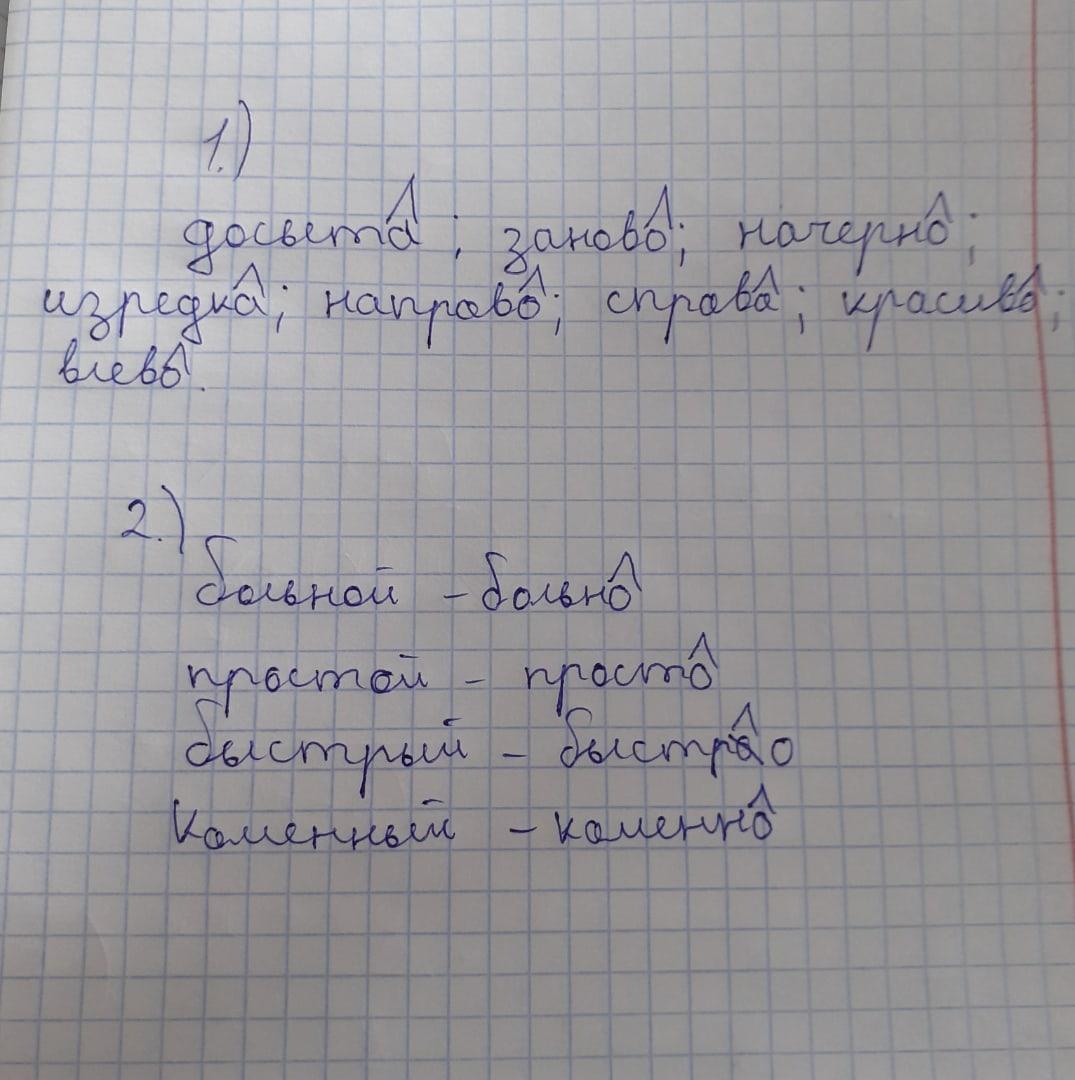 1.)
досвета; заново; начерно;
изредка; направо; справа; красиво;
влево.
2.)
больной - больно
простой - просто
быстрый - быстро
Каменный - каменно